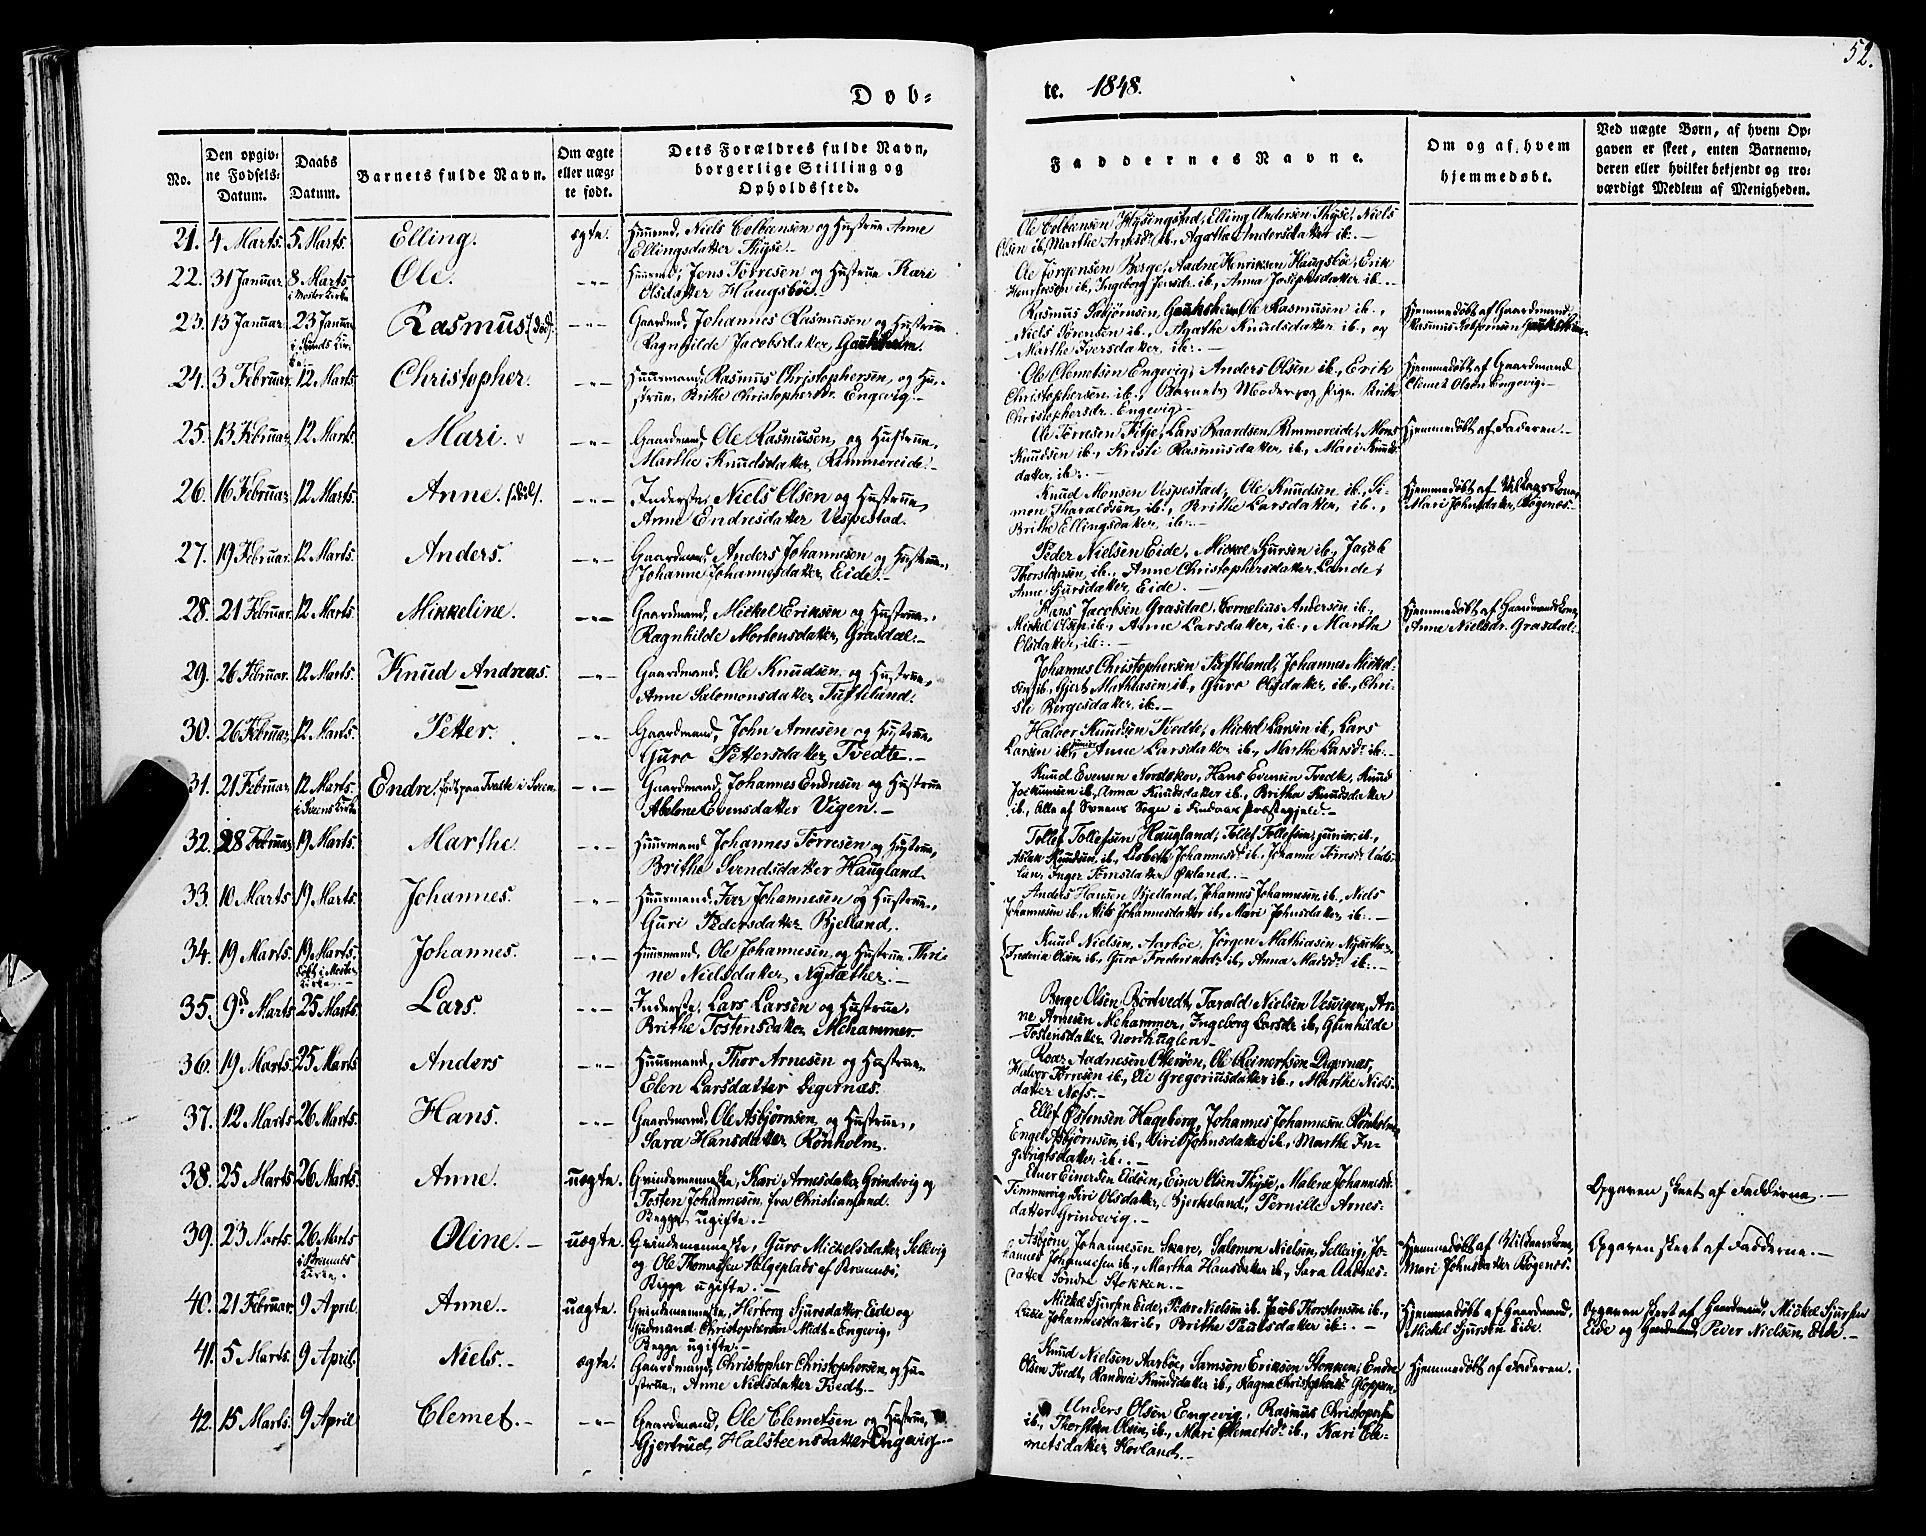 52.
Døb-
te. 1848.
No.
Den opgiv-
ne Fødsels-
Datum.
Daabs
Datum.
Barnets fulde Navn.
Om ægte
eller uæg-
te født.
Dets Forældres fulde Navn,
borgerlige Stilling og
Opholdssted.
Faddernes Navne.
Om og af hvem
hjemmedøbt.
Ved uægte Børn, af hvem Op-
gaven er skeet, enten Barnemo-
deren eller hvilket bekjendt og tro-
værdigt Medlem af Menigheden.
21. 4 Marts. 5. Marts. Elling. ægte. Huusmd. Niels Colbensen og Hustrue Anne
Ellingsdatter Thyse.-
Ole Colbensen Hysingstad, Elling Andersen Thyse, Niels
Olsen ib., Marthe Arnesdr. ib., Agatha Andersdatter ib.-
22. 31 Januar 8 Marts. Ole. -"- Huusmd, Jens Tørresen og Hustrue Kari
i Moster Kirke
Olsdatter Haugsbøe.-
Ole Jørgensen Berge, Aadne Henriksen Haugsbøe, Erik
Henriksen ib., Ingeborg Jensdr. ib., Anna Josephsdatter ib.-
23. 13 Januar. 23 Januar Rasmus (død). -"- Gaardmd, Johannes Rasmussen og Hustrue
Ragnhilde Jacobsdatter, Gauksheim.
Rasmus Asbjørnsen, Gauksheim, Ole Rasmussen ib.,
Niels Sørensen ib., Agathe Knudsdatter ib., og
Marthe Iversdatter, ib.-
Hjemmedøbt af Gaardmand
Rasmus Asbjørnsen Gauksheim
24. 3 Februar. 12 Marts. Christopher. -"- Huusmand, Rasmus Christophersen, og Hu-
strue, Brithe Christophersdr. Engevig.-
Ole Clemetsen Engevig, Anders Olsen ib., Erik
Christophersen ib., Barnets Moder, og Pige Brithe
Christophersdr. Engevig.-
Hjemmedøbt af Gaardmand
Clemet Olsen Engevig.-
25. 13 Februar. 12 Marts. Mari. -"- Gaardmand, Ole Rasmussen, og Hustrue,
Marthe Knudsdatter, Rimmereide.-
Ole Tørresen Fitje, Lars Baardsen Rimmereide, Mons
Knudsen ib., Kristi Rasmusdatter, ib., Mari Knuds
datter, ib.-
Hjemmedøbt af Faderen.-
26. 16 Februar 12 Marts. Anne. (død). -"- Inderste, Niels Olsen og Hustrue,
Anne Endresdatter Vespestad.
Knud Monsen Vespestad, Ole Knudsen ib., Si-
mon Haraldsen, ib., Brithe Larsdatter, ib.,
Brithe Ellingsdatter, ib.-
Hjemmedøbt af
Mari Johnsdatter, Røgenæs.
27. 19 Februar. 12 Marts. Anders. -"- Gaardmand, Anders Johannesen og Hustrue,
Johanne Johannesdatter, Eide.-
Peder Nielsen Eide, Mickel Sjursen ib., Jacob
Thorstensen, ib., Anne Christophersdatter Lande,
Anne Sjursdatter, Eide.-
28. 21 Februar. 12 Marts. Mikkeline. -"- Gaardmand, Mickel Eriksen og Hustrue,
Ragnhilde Mortensdatter, Grasdal.-
Hans Jacobsen Grasdal, Cornelius Andersen ib.,
Mickel Olsen ib., Anne Larsdatter, ib., Martha
Olsdatter, ib.-
Hjemmedøbt af Gaardmandskone,
Anne Nielsdr. Grasdal.
29. 26 Februar. 12 Marts. Knud Andreas. -"- Gaardmand, Ole Knudsen, og Hustrue,
Anne Salomonsdatter, Tufteland.
Johannes Christophersen Tufteland, Johannes Mickel-
sen ib., Gjert Mathiasen ib., Guro Olsdatter, ib., Chri-
sti Bergesdatter, ib.-
30. 26 Februar. 12 Marts. Petter. -"- Gaardmand, John Arnesen og Hustrue,
Guro Pettersdatter, Tvedte.-
Halvor Knudsen Tvedte, Mickel Larsen ib., Lars
Larsen ib., Anne Larsdatter ib., Marthe Larsdr. ib.-
31. 21 Februar 12 Marts. Endre, født paa Tvedte i Sveen. -"- Gaardmand, Johannes Endresen og Hustrue
i Sveens Kirke
Abelone Evensdatter Vigen.-
Knud Evensen Nordskov, Hans Evensen Tvedte, Knud
Jockumsen ib., Anna Knudsdatter ib., Britha Knudsdatter
ib., Alle af Sveens Sogn i Findaas Præstegjeld.-
32. 28 Februar 19 Marts. Marthe. -"- Huusmand Johannes Tørresen og Hustrue,
Brithe Svendsdatter Haugland.
Tollef Tollefsen Haugland, Tollef Tollefsen, junior, ib.,
Aslak Knudsen, ib., Lisbeth Johannesdr. ib., Johanne Tørresdr.
Inger Tørresdatter, Økland.-
33. 10 Marts 19 Marts. Johannes. -"- Huusmand, Iver Johannesen og Hustrue,
Guri Pedersdatter, Bjelland.
Anders Hansen Bjelland, Johannes Johannesen, ib., Niels
Johannesen ib., Johannesdatter ib., Mari Johnsdatter, ib.-
34. 19 Marts. 19 Marts. Johannes. -"- Huusmand, Ole Johannesen, og Hustrue Thri-
døbt i Moster
Kirke.
ne Nielsdatter, Nysæther.-
Knud Nielsen, Aarbøe, Jørgen Mathiasen Nysæther,
Frederik Olsen, ib., Guro Frederiksdr. ib., Anna Madsdr. ib.-
35. 9de Marts 25 Marts. Lars. -"- Inderste, Lars Larsen og Hustrue,
Brithe Tostensdatter, Mehammer.
Berge Olsen Børtvedt, Tarald Nielsen Vesvigen, Ar-
ne Arnesen Mehammer, Ingeborg Larsdr. ib., Gunhilde
Tostensdatter, Nordhuglen.
36. 19 Marts. 25 Marts. Anders -"- Huusmand, Thor Arnesen og Hustrue,
Elen Larsdatter Digernæs.
Roar Aadnesen Otterøen, Ole Reinertsen Digernæs,
Halvor Tørresen ib., Ole Gregoriusdatter ib., Marthe Niels-
datter Næss.-
37. 12 Marts 26 Marts. Hans. -"- Gaardmand, Ole Asbjørnsen, og Hustrue,
Sara Hansdatter, Rønholm.
Ellef Østensen Hageberg, Johannes Johannesen Rønholm
Engel Asbjørnsen, ib., Siri Johnsdatter ib., Marthe In-
gebrigtsdatter ib.-
38. 25 Marts 26 Marts. Anne. uægte. Grindemenneske, Kari Arnesdatter, Grindevig og
Tosten Johannesen, fra Christiansand.
Begge ugifte.-
Einer Einersen Eidsen, Einer Olsen Thyse, Malene Johannesdr.
Timmervig, Siri Olsdatter, Bjerkeland, Pernille Arnes-
datter Grindevig.-
Opgaven skeet af Fadderne.-
39. 23 Marts. 26 Marts Oline.- uægte. Grindemenneske, Guro Mickelsdatter, Sellevig
i Bremnæs
Kirke.
og Ole Thomassen Helgeplads af Bremnæs,
Begge ugifte.-
Asbjørn Johannesen Skare, Salomon Nielsen, Sellevig, Jo-
hannes Johannesen ib., Martha Hansdatter ib., Sara Aadnes-
datter Søndre Stokken.-
Hjemmedøbt af
Mari Johnsdatter Røgenæs.
Opgaven skeet af Fadderne.-
40. 21 Februar. 9 April. Anne.- uægte. Grindemenneske, Herborg Sjursdatter Eide og
Gudmund Christophersen Midt-Engevig,
Begge ugifte.-
Mickel Sjursen Eide, Peder Nielsen ib., Jacob Thorstensen ib.,
Lisbe Johannesdatter ib., Brithe Paulsdatter ib.-
Hjemmedøbt af Gaardmand,
Mickel Sjursen Eide.
Opgaven skeet af Gaardmand, Mickel Sjursen
Eide og Gaardmand, Peder Nielsen, Eide.-
41. 5 Marts. 9 April. Niels.- ægte. Gaardmand, Christopher Christophersen, og Hu-
strue, Anne Nielsdatter Tvedt.-
Knud Nielsen Aarbøe, Samson Eriksen Stokken, Endre
Olsen Tvedt, Randvei Knudsdatter ib., Ragna Christophersdr. Gloppen.
Hjemmedøbt af Faderen.
42. 15 Marts. 9 April Clemet.- -"- Gaardmand, Ole Clemetsen og Hustrue,
Gjertrud, Halsteensdatter Engevig.-
Anders Olsen Engevig, Rasmus Christophersen
ib., Thorsten Olsen, ib., Mari Clemetsdr. ib., Kari Cle-
metsdatter, Hovland.-